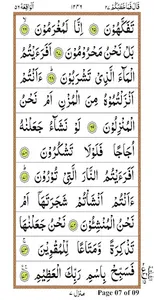 قال فما خطبكم ٢٧ ١٢٣٢ الواقعة ٥٦
تَفَكَّهُوْنَ ﴿٦٥﴾ اِنَّا لَمُغْرَمُوْنَ ﴿٦٦﴾
بَلْ نَحْنُ مَحْرُوْمُوْنَ ﴿٦٧﴾ اَفَرَءَيْتُمُ
الْمَآءَ الَّذِيْ تَشْرَبُوْنَ ﴿٦٨﴾ ءَاَنْتُمْ
اَنْزَلْتُمُوْهُ مِنَ الْمُزْنِ اَمْ نَحْنُ
الْمُنْزِلُوْنَ ﴿٦٩﴾ لَوْ نَشَآءُ جَعَلْنٰهُ
اُجَاجًا فَلَوْلَا تَشْكُرُوْنَ ﴿٧٠﴾
اَفَرَءَيْتُمُ النَّارَ الَّتِيْ تُوْرُوْنَ ﴿٧١﴾
ءَاَنْتُمْ اَنْشَاْتُمْ شَجَرَتَهَآ اَمْ
نَحْنُ الْمُنْشِـُٔوْنَ ﴿٧٢﴾ نَحْنُ جَعَلْنٰهَا
تَذْكِرَةً وَّمَتَاعًا لِّلْمُقْوِيْنَ ﴿٧٣﴾
فَسَبِّحْ بِاسْمِ رَبِّكَ الْعَظِيْمِ ﴿٧٤﴾
منزل ٧
Page 07 of 09